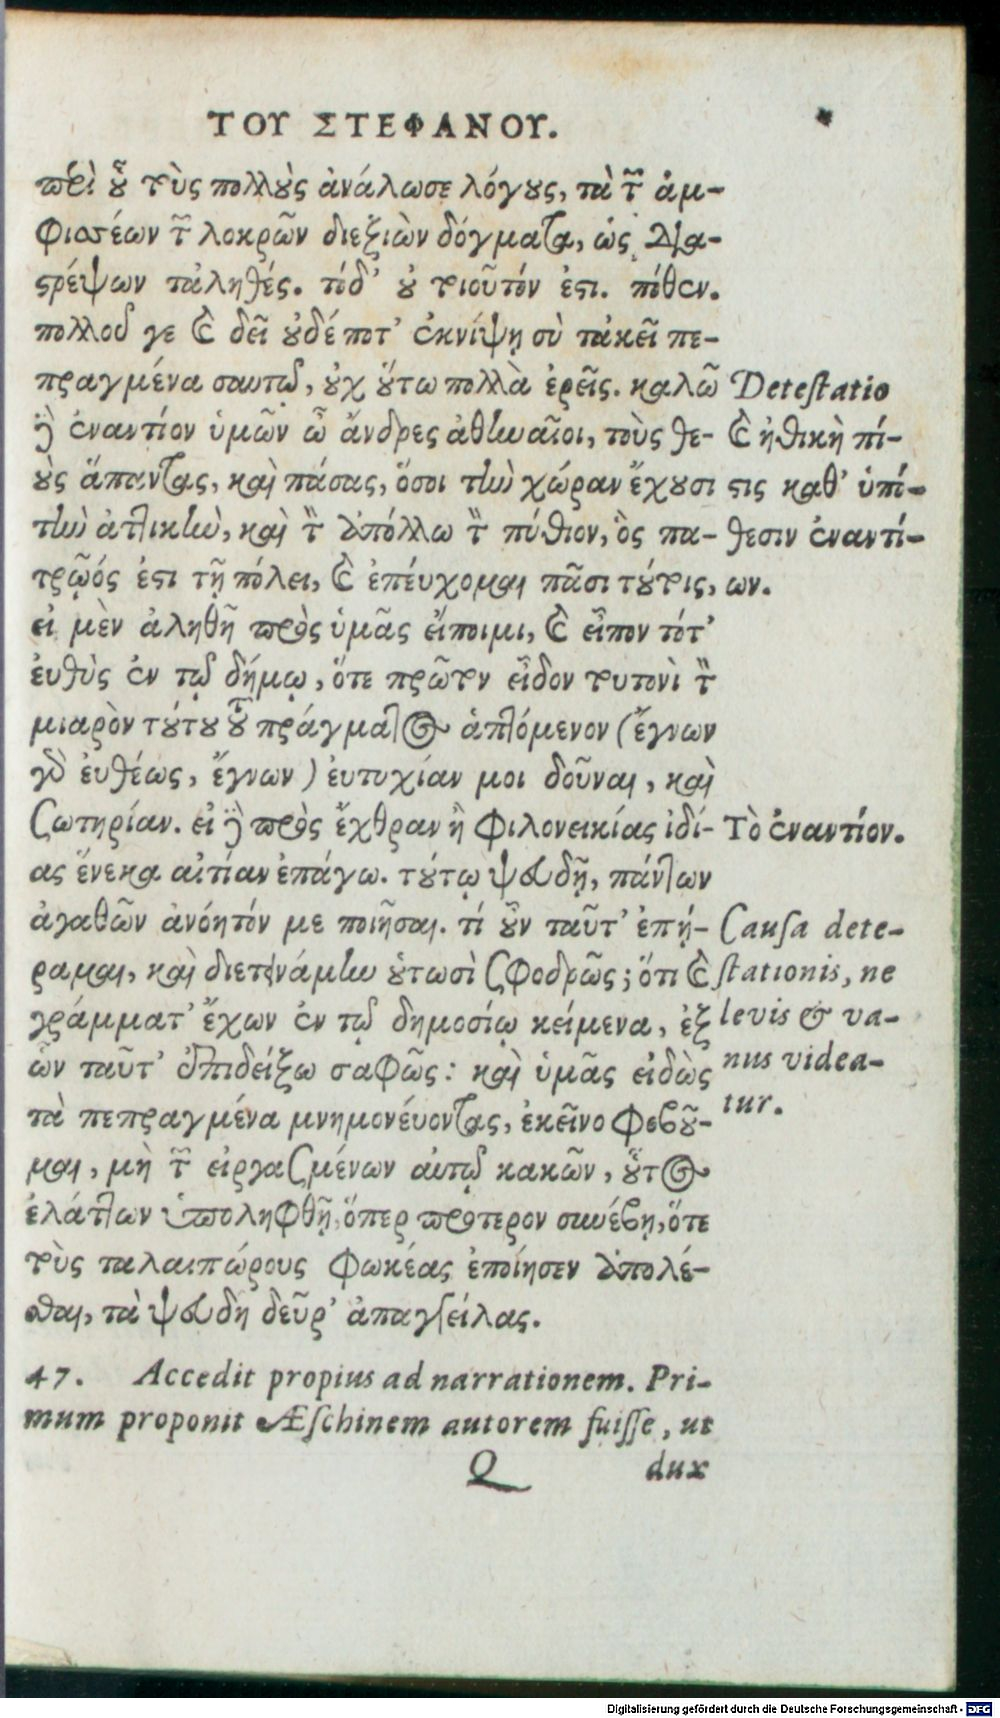 ΤΟΥ ΣΤΕΦΑΝΟΥ.
περὶ οὗ τοὺς πολλοὺς ἀνάλωσε λόγους, τὰ τῶν ἀμ-
φισσέων τῶν λοκρῶν διεξιὼν δόγματα, ὡς δια-
στρέψων τἀληθές. τόδ' οὐ τοιοῦτόν ἐστι. πόθεν.
πολλοῦ γε καὶ δεῖ οὐδέποτ' ἐκνίψῃ σὺ τἀκεῖ πε-
πραγμένα σαυτῷ, οὐχ οὕτω πολλὰ ἐρεῖς. καλῶ
δ' ἐναντίον ὑμῶν ὦ ἄνδρες ἀθηναῖοι, τοὺς θε-
οὺς ἅπαντας, καὶ πάσας, ὅσοι τὴν χώραν ἔχουσι
τὴν ἀττικὴν, καὶ τὸν ἀπόλλω τὸν πύθιον, ὃς πα-
τρῷός ἐστι τῇ πόλει, καὶ ἐπέυχομαι πᾶσι τούτοις,
εἰ μὲν ἀληθῆ πρὸς ὑμᾶς εἴποιμι, καὶ εἶπον τότ'
ἐυθὺς ἐν τῷ δήμῳ, ὅτε πρῶτον εἶδον τουτονὶ τὸν
μιαρὸν τούτου τοῦ πράγματος ἁπτόμενον (ἔγνων
γὰρ ἐυθέως, ἔγνων) ἐυτυχίαν μοι δοῦναι, καὶ
σωτηρίαν. εἰ δὲ πρὸς ἔχθραν ἢ φιλονεικίας ἰδί-
ας ἕνεκα αἰτίαν ἐπάγω. τούτῳ ψευδῆ, πάντων
ἀγαθῶν ἀνόητόν με ποιῆσαι. τί οὖν ταῦτ' ἐπή-
ραμαι, καὶ διετεινάμην οὑτωσὶ σφοδρῶς; ὅτι καὶ
γράμματ' ἔχων ἐν τῷ δημοσίῳ κείμενα, ἐξ
ὧν ταῦτ' ἐπιδείξω σαφῶς: καὶ ὑμᾶς εἰδὼς
τὰ πεπραγμένα μνημονέυοντας, ἐκεῖνο φοβοῦ-
μαι, μὴ τῶν εἰργασμένων αὐτῷ κακῶν, οὗτος
ἐλάττων ὑποληφθῇ, ὅπερ πρότερον συνέβη, ὅτε
τοὺς ταλαιπώρους φωκέας ἐποίησεν ἀπολέ-
σθαι, τὰ ψευδῆ δεῦρ' ἀπαγγείλας.
Detestatio
καὶ ἠθικὴ πί-
στις καθ' ὑπό-
θεσιν ἐναντί-
ων.
Τὸ ἐναντίον.
Causa dete-
stationis, ne
levis & va-
nus videa-
tur.
47. Accedit propius ad narrationem. Pri-
mum proponit Æschinem autorem fuisse, ut
Q dux
Digitalisierung gefördert durch die Deutsche Forschungsgemeinschaft - DFG